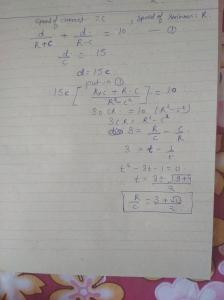 Speed of current = C , Speed of swimmer = R
d/(R+C) + d/(R-C) = 10 — ①
d/C = 15
d = 15C
put in ①
15C [ (R+C + R-C)/(R²-C²) ] = 10
30CR = 10 (R²-C²)
3CR = R²-C²
3 = R/C - C/R
3 = t - 1/t
t² - 3t - 1 = 0
t = (3+√(9+4))/2
R/C = (3+√13)/2